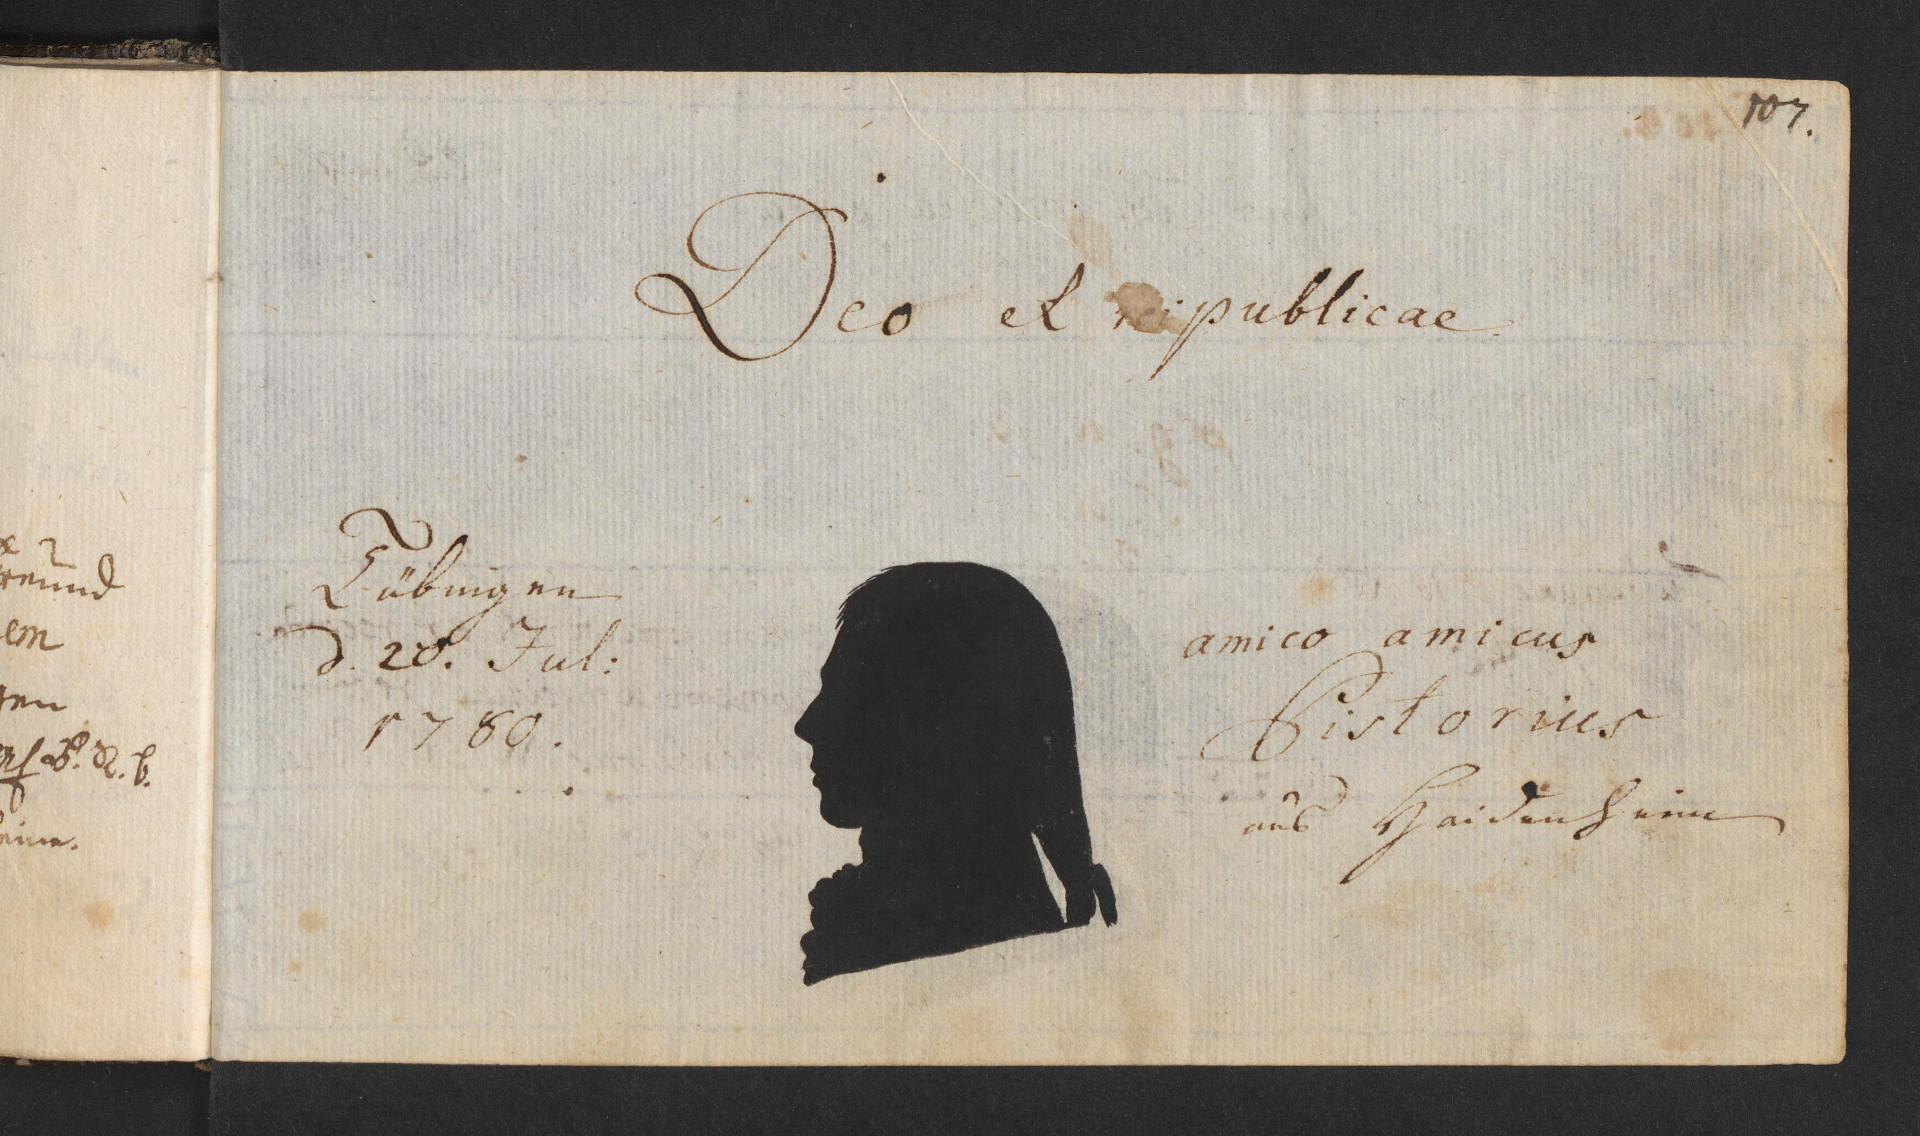 107.
Deo et reipublicae.
Tübingen
d. 20. Jul:
1780.
amico amicus
Pistorius
aus Haidenheim
em